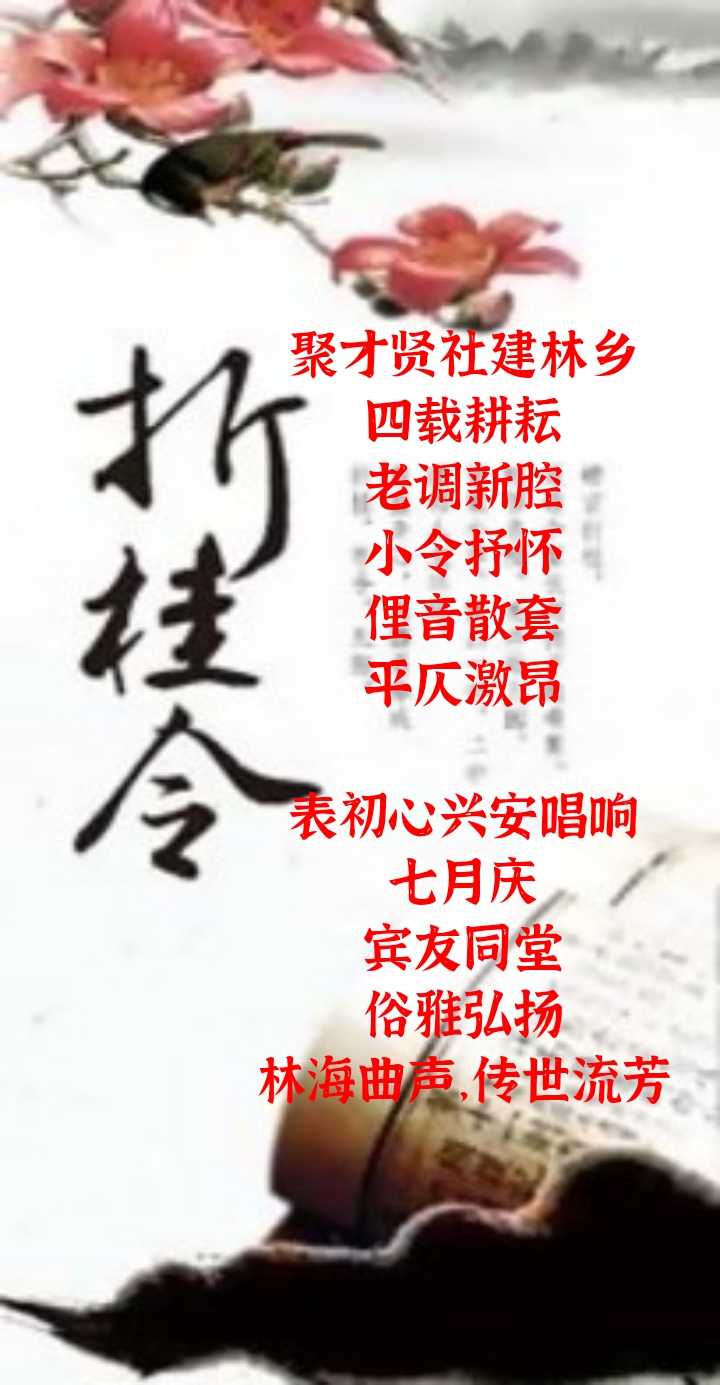 折桂令
聚才贤社建林乡
四载耕耘
老调新腔
小令抒怀
俚音散套
平仄激昂
表初心兴安唱响
七月庆
宾友同堂
俗雅弘扬
林海曲声,传世流芳